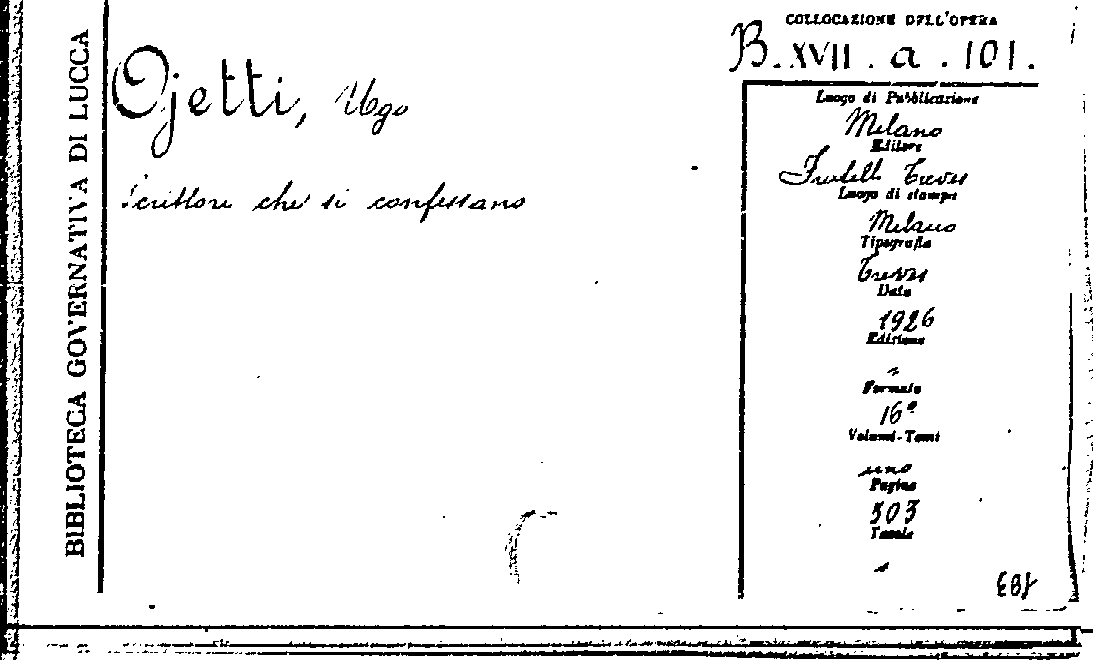 BIBLIOTECA GOVERNATIVA DI LUCCA
Ojetti, Ugo
Scrittori che si confessano
COLLOCAZIONE DELL'OPERA
B. XVII. a. 101.
Luogo di Pubblicazione
Milano
Editore
Fratelli Treves
Luogo di stampa
Milano
Tipografia
Treves
Data
1926
Edizione
Formato
16°
Volumi-Tomi
uno
Pagine
303
Tavole